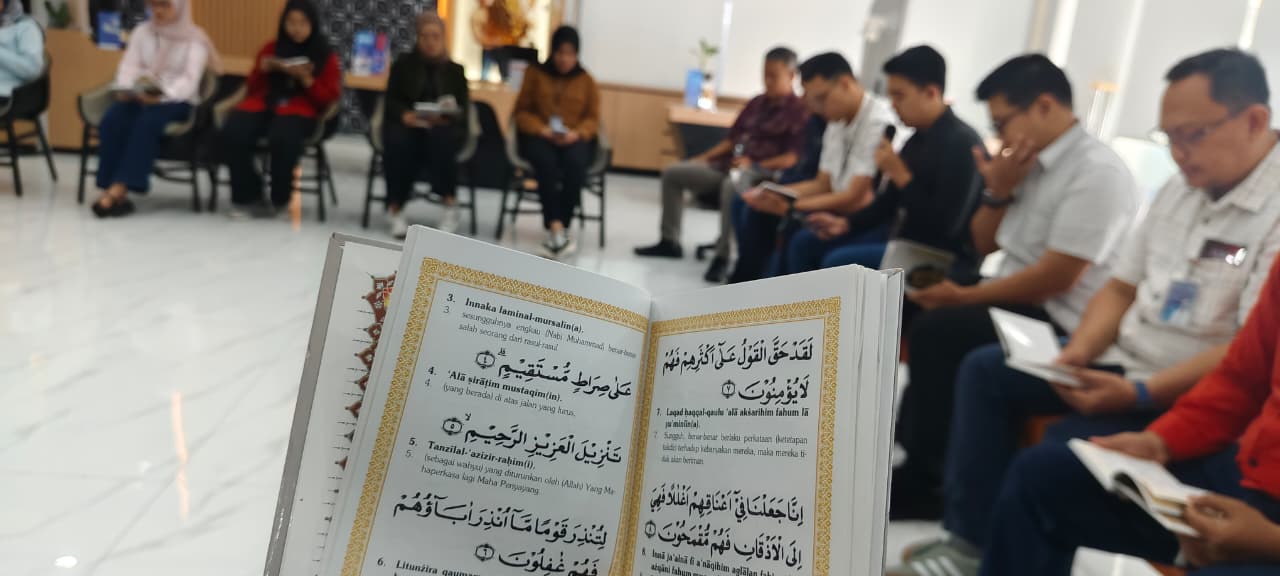 3. Innaka laminal-mursalīn(a).
3. sesungguhnya engkau (Nabi Muhammad) benar-benar
salah seorang dari rasul-rasul
عَلٰى صِرَاطٍ مُّسْتَقِيْمٍۗ ٤
4. 'Alā ṣirāṭim mustaqīm(in).
4. (yang berada) di atas jalan yang lurus,
تَنْزِيْلَ الْعَزِيْزِ الرَّحِيْمِۙ ٥
5. Tanzīlal-'azīzir-raḥīm(i).
5. (sebagai wahyu) yang diturunkan oleh (Allah) Yang Ma-
haperkasa lagi Maha Penyayang,
لِتُنْذِرَ قَوْمًا مَّآ اُنْذِرَ اٰبَاۤؤُهُمْ
فَهُمْ غٰفِلُوْنَ ٦
6. Litunżira qauman
لَقَدْ حَقَّ الْقَوْلُ عَلٰٓى اَكْثَرِهِمْ فَهُمْ
لَا يُؤْمِنُوْنَ ٧
7. Laqad ḥaqqal-qaulu 'alā akṡarihim fahum lā
yu'minūn(a).
7. Sungguh, benar-benar berlaku perkataan (ketetapan
takdir) terhadap kebanyakan mereka, maka mereka ti-
dak akan beriman.
اِنَّا جَعَلْنَا فِيْٓ اَعْنَاقِهِمْ اَغْلٰلًا فَهِيَ
اِلَى الْاَذْقَانِ فَهُمْ مُّقْمَحُوْنَ ٨
8. Innā ja'alnā fī a'nāqihim aglālan fahiya
ażqāni fahum